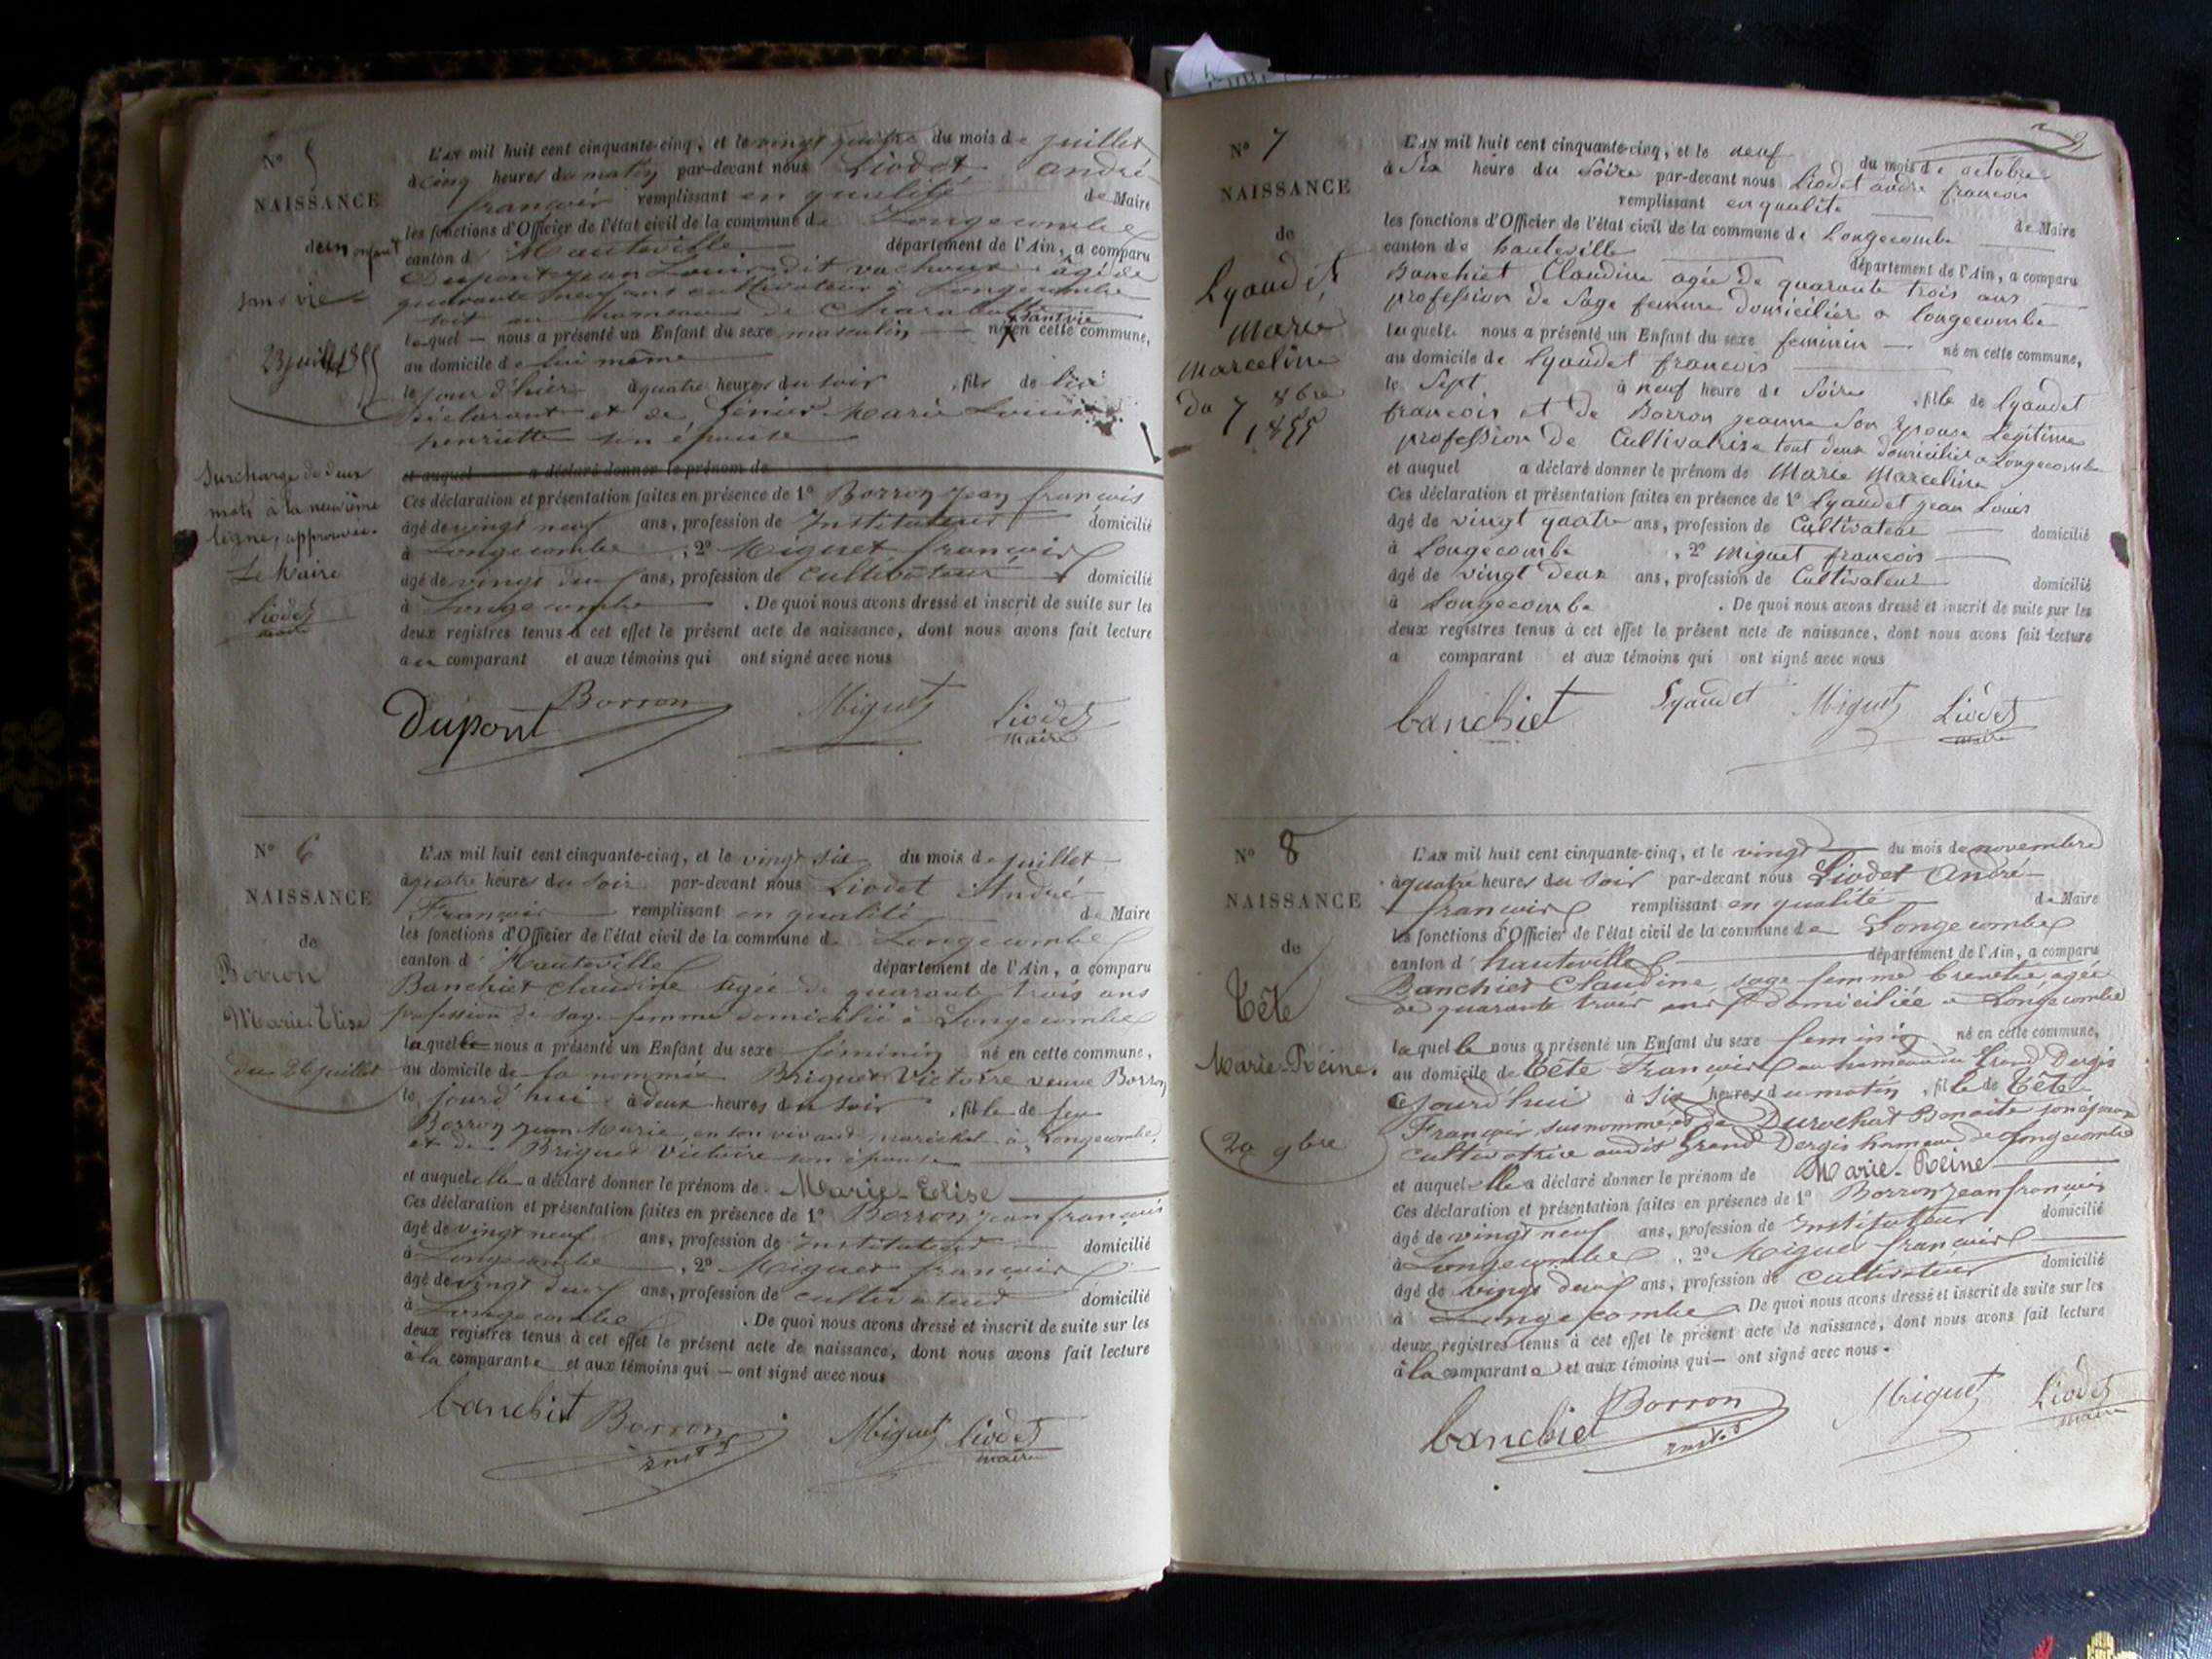 N° 5
NAISSANCE
d'un enfant
sans vie
23 juillet 1855
L'AN mil huit cent cinquante-cinq, et le vingt quatre du mois de juillet
à cinq heures du matin par-devant nous Liodet andré
françois remplissant en qualité de Maire
les fonctions d'Officier de l'état civil de la commune de Longecombe
canton d' Hauteville département de l'Ain, a comparu
Dupont jean Louis dit vachoux âgé de
quarante neuf ans cultivateur à Longecombe
soit au hameau de
sans vie
lequel nous a présenté un Enfant du sexe masculin né en cette commune,
au domicile de lui même
le jour d'hier à quatre heures du soir, fils de lui
déclarant et de Génier Marie Louise
henriette son épouse
et auquel a déclaré donner le prénom de
Surcharge de deux
mots à la neuvième
ligne, approuvée.
Le Maire
Liodet
maire
Ces déclaration et présentation faites en présence de 1° Borron jean françois
âgé de vingt neuf ans, profession de Instituteur domicilié
à Longecombe, 2° Miguet françois
âgé de vingt deux ans, profession de cultivateur domicilié
à Longecombe. De quoi nous avons dressé et inscrit de suite sur les
deux registres tenus à cet effet le présent acte de naissance, dont nous avons fait lecture
au comparant et aux témoins qui ont signé avec nous
Dupont Borron Miguet Liodet
maire
N° 6
NAISSANCE
de
Borron
Marie-Elise
du 26 juillet
L'AN mil huit cent cinquante-cinq, et le vingt six du mois de juillet
à quatre heures du soir par-devant nous Liodet André
François remplissant en qualité de Maire
les fonctions d'Officier de l'état civil de la commune d. Longecombe
canton d' Hauteville département de l'Ain, a comparu
Banchiet Claudine agée de quarante trois ans
profession de sage femme domicilié à Longecombe
laquelle nous a présenté un Enfant du sexe féminin né en cette commune,
au domicile de la nommée Briguet Victoire veuve Borron
le jourd'hui à deux heures du soir, fille de feu
Borron jean Marie, en son vivant maréchal à Longecombe,
et de Briguet Victoire son épouse
et auquel elle a déclaré donner le prénom de Marie-Elise
Ces déclaration et présentation faites en présence de 1° Borron jean françois
âgé de vingt neuf ans, profession de Instituteur domicilié
à Longecombe, 2° Miguet françois
âgé de vingt deux ans, profession de cultivateur domicilié
à Longecombe. De quoi nous avons dressé et inscrit de suite sur les
deux registres tenus à cet effet le présent acte de naissance, dont nous avons fait lecture
à la comparante et aux témoins qui ont signé avec nous
banchiet Borron Miguet Liodet
maire
2
N° 7
NAISSANCE
de
Lyaudet
Marie
Marceline
du 7 8bre
1855
L'AN mil huit cent cinquante-cinq, et le neuf du mois de octobre
à Six heure du Soire par-devant nous Liodet andre francois
remplissant en qualite de Maire
les fonctions d'Officier de l'état civil de la commune de Longecombe
canton de hauteville département de l'Ain, a comparu
Banchiet Claudine agée de quarante trois ans
profession de Sage femme domicilier a longecombe
laquelle nous a présenté un Enfant du sexe feminin né en cette commune,
au domicile de Lyaudet francois
le Sept à neuf heure de Soire, fille de Lyaudet
francois et de Borron jeanne Son Epouse Legitime
profession de Cultivatrise tout deux domicilier a Longecombe
et auquel a déclaré donner le prénom de Marie Marceline
Ces déclaration et présentation faites en présence de 1° Lyaudet jean Louis
âgé de vingt quatre ans, profession de Cultivateur domicilié
à Longecombe, 2° Miguet francois
âgé de vingt deux ans, profession de Cultivateur domicilié
à Longecombe. De quoi nous avons dressé et inscrit de suite sur les
deux registres tenus à cet effet le présent acte de naissance, dont nous avons fait lecture
a comparant et aux témoins qui ont signé avec nous
banchiet Lyaudet Miguet Liodet
maire
N° 8
NAISSANCE
de
Tête
Marie-Reine.
20 9bre
L'AN mil huit cent cinquante-cinq, et le vingt du mois de novembre
à quatre heures du soir par-devant nous Liodet André
françois remplissant en qualité de Maire
les fonctions d'Officier de l'état civil de la commune de Longecombe
canton d' hauteville département de l'Ain, a comparu
Banchiet Claudine, sage femme brevetée, agée
de quarante trois ans domiciliée à Longecombe
laquelle nous a présenté un Enfant du sexe feminin né en cette commune,
au domicile de Tête François au hameau du Grand Dergis
ce jourd'hui à six heures du matin, fille de Tête
François, susnommé et de Durochat Benoite son épouse
cultivatrice audit Grand Dergis hameau de Longecombe
et auquel elle a déclaré donner le prénom de Marie-Reine
Ces déclaration et présentation faites en présence de 1° Borron jean françois
âgé de vingt neuf ans, profession de Instituteur domicilié
à Longecombe, 2° Miguet françois
âgé de vingt deux ans, profession de cultivateur domicilié
à Longecombe. De quoi nous avons dressé et inscrit de suite sur les
deux registres tenus à cet effet le présent acte de naissance, dont nous avons fait lecture
à la comparante et aux témoins qui ont signé avec nous.
banchiet Borron Miguet Liodet
maire